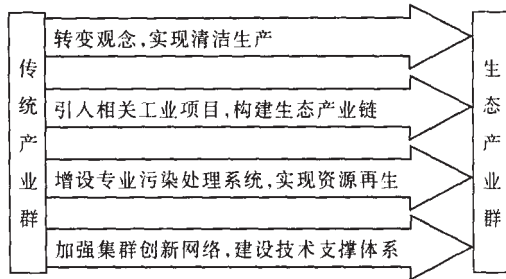 传统产业群
转变观念,实现清洁生产
引入相关工业项目,构建生态产业链
增设专业污染处理系统,实现资源再生
加强集群创新网络,建设技术支撑体系
生态产业群